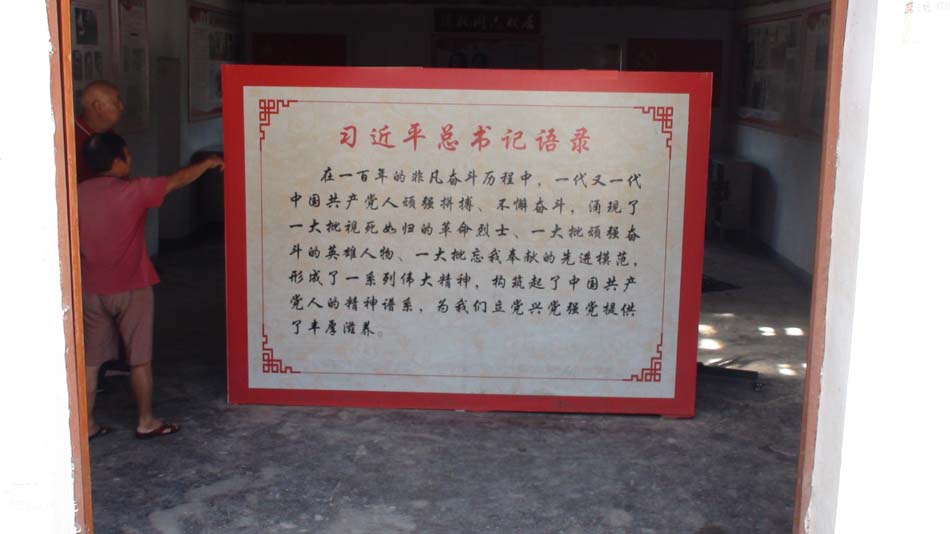 习近平总书记语录
在一百年的非凡奋斗历程中，一代又一代
中国共产党人顽强拼搏、不懈奋斗，涌现了
一大批视死如归的革命烈士、一大批顽强奋
斗的英雄人物、一大批忘我奉献的先进模范，
形成了一系列伟大精神，构筑起了中国共产
党人的精神谱系，为我们立党兴党强党提供
了丰厚滋养。